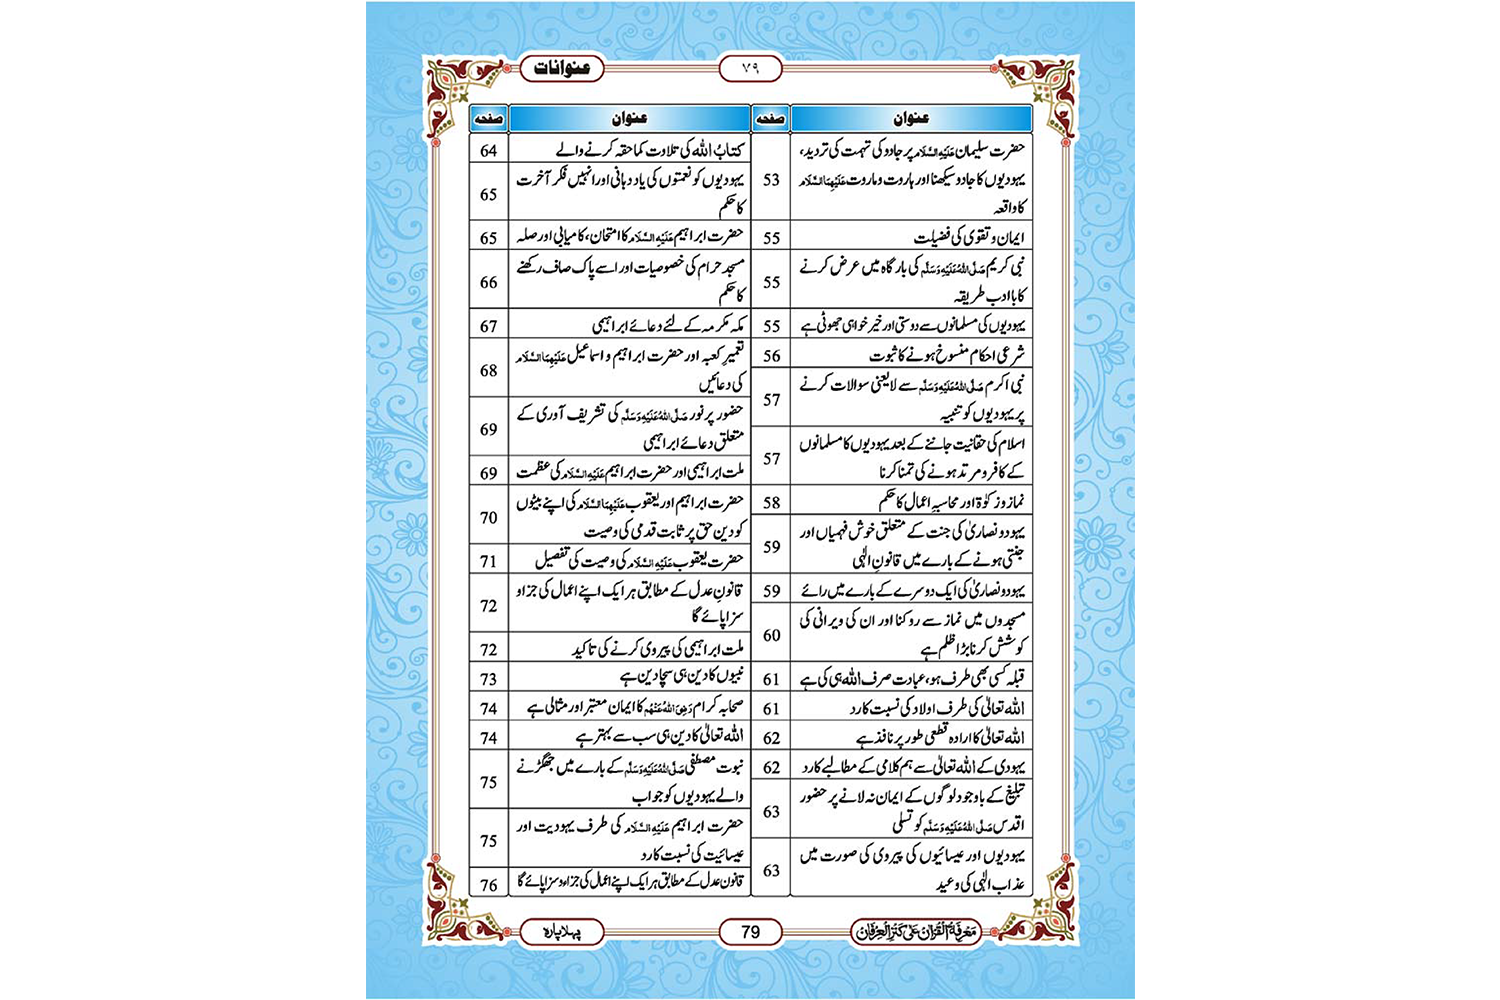 عنوانات
۷۹
عنوان صفحہ
حضرت سلیمان عَلَیْہِ السَّلَام پر جادو کی تہمت کی تردید،
یہودیوں کا جادو سیکھنا اور ہاروت و ماروت عَلَیْہِمَا السَّلَام
کا واقعہ
53
ایمان و تقوی کی فضیلت 55
نبی کریم صَلَّی اللہُ عَلَیْہِ وَسَلَّم کی بارگاہ میں عرض کرنے
کا باادب طریقہ
55
یہودیوں کی مسلمانوں سے دوستی اور خیر خواہی جھوٹی ہے 55
شرعی احکام منسوخ ہونے کا ثبوت 56
نبی اکرم صَلَّی اللہُ عَلَیْہِ وَسَلَّم سے لایعنی سوالات کرنے
پر یہودیوں کو تنبیہ
57
اسلام کی حقانیت جاننے کے بعد یہودیوں کا مسلمانوں
کے کافر و مرتد ہونے کی تمنا کرنا
57
نماز و زکوٰۃ اور محاسبہِ اعمال کا حکم 58
یہود و نصاریٰ کی جنت کے متعلق خوش فہمیاں اور
جنتی ہونے کے بارے میں قانونِ الٰہی
59
یہود و نصاریٰ کی ایک دوسرے کے بارے میں رائے 59
مسجدوں میں نماز سے روکنا اور ان کی ویرانی کی
کوشش کرنا بڑا ظلم ہے
60
قبلہ کسی بھی طرف ہو، عبادت صرف اللہ ہی کی ہے 61
اللہ تعالیٰ کی طرف اولاد کی نسبت کا رد 61
اللہ تعالیٰ کا ارادہ قطعی طور پر نافذ ہے 62
یہودی کے اللہ تعالیٰ سے ہم کلامی کے مطالبے کا رد 62
تبلیغ کے باوجود لوگوں کے ایمان نہ لانے پر حضور
اقدس صَلَّی اللہُ عَلَیْہِ وَسَلَّم کو تسلی
63
یہودیوں اور عیسائیوں کی پیروی کی صورت میں
عذاب الٰہی کی وعید
63
عنوان صفحہ
کتابُ اللہ کی تلاوت کماحقہ کرنے والے 64
یہودیوں کو نعمتوں کی یاد دہانی اور انہیں فکر آخرت
کا حکم
65
حضرت ابراہیم عَلَیْہِ السَّلَام کا امتحان، کامیابی اور صلہ 65
مسجد حرام کی خصوصیات اور اسے پاک صاف رکھنے
کا حکم
66
مکہ مکرمہ کے لئے دعائے ابراہیمی 67
تعمیرِ کعبہ اور حضرت ابراہیم و اسماعیل عَلَیْہِمَا السَّلَام
کی دعائیں
68
حضور پر نور صَلَّی اللہُ عَلَیْہِ وَسَلَّم کی تشریف آوری کے
متعلق دعائے ابراہیمی
69
ملت ابراہیمی اور حضرت ابراہیم عَلَیْہِ السَّلَام کی عظمت 69
حضرت ابراہیم اور یعقوب عَلَیْہِمَا السَّلَام کی اپنے بیٹوں
کو دین حق پر ثابت قدمی کی وصیت
70
حضرت یعقوب عَلَیْہِ السَّلَام کی وصیت کی تفصیل 71
قانونِ عدل کے مطابق ہر ایک اپنے اعمال کی جزا و
سزا پائے گا
72
ملت ابراہیمی کی پیروی کرنے کی تاکید 72
نبیوں کا دین ہی سچا دین ہے 73
صحابہ کرام رَضِیَ اللہُ عَنْہُم کا ایمان معتبر اور مثالی ہے 74
اللہ تعالیٰ کا دین ہی سب سے بہتر ہے 74
نبوت مصطفٰی صَلَّی اللہُ عَلَیْہِ وَسَلَّم کے بارے میں جھگڑنے
والے یہودیوں کو جواب
75
حضرت ابراہیم عَلَیْہِ السَّلَام کی طرف یہودیت اور
عیسائیت کی نسبت کا رد
75
قانون عدل کے مطابق ہر ایک اپنے اعمال کی جزاء و سزا پائے گا 76
مَعْرِفَۃُ الْقُرْاٰن عَلٰی کَنْزِ الْعِرْفَان
79
پہلا پارہ